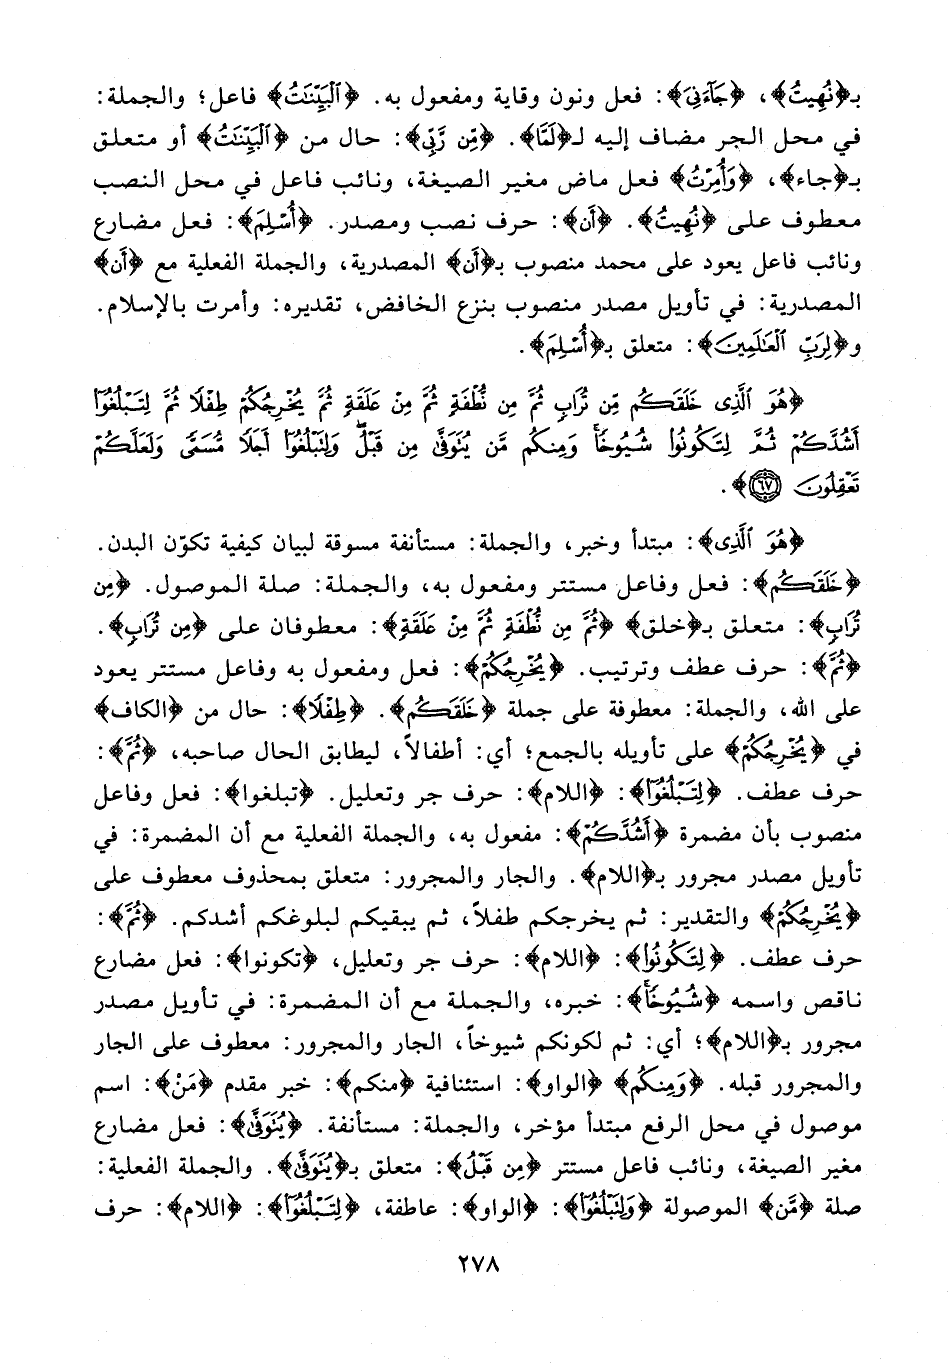 بـ﴿نُهِيتُ﴾، ﴿جَآءَنِىَ﴾: فعل ونون وقاية ومفعول به. ﴿ٱلْبَيِّنَـٰتُ﴾ فاعل؛ والجملة:
في محل الجر مضاف إليه لـ﴿لَمَّا﴾. ﴿مِن رَّبِّى﴾: حال من ﴿ٱلْبَيِّنَـٰتُ﴾ أو متعلق
بـ﴿جاء﴾، ﴿وَأُمِرْتُ﴾ فعل ماض مغير الصيغة، ونائب فاعل في محل النصب
معطوف على ﴿نُهِيتُ﴾. ﴿أَن﴾: حرف نصب ومصدر. ﴿أُسْلِمَ﴾: فعل مضارع
ونائب فاعل يعود على محمد منصوب بـ﴿أَن﴾ المصدرية، والجملة الفعلية مع ﴿أَن﴾
المصدرية: في تأويل مصدر منصوب بنزع الخافض، تقديره: وأمرت بالإسلام.
و﴿لِرَبِّ ٱلْعَـٰلَمِينَ﴾: متعلق بـ﴿أُسْلِمَ﴾.
﴿هُوَ ٱلَّذِى خَلَقَكُم مِّن تُرَابٍ ثُمَّ مِن نُّطْفَةٍ ثُمَّ مِنْ عَلَقَةٍ ثُمَّ يُخْرِجُكُمْ طِفْلًا ثُمَّ لِتَبْلُغُوٓا۟
أَشُدَّكُمْ ثُمَّ لِتَكُونُوا۟ شُيُوخًا ۚ وَمِنكُم مَّن يُتَوَفَّىٰ مِن قَبْلُ ۖ وَلِتَبْلُغُوٓا۟ أَجَلًا مُّسَمًّى وَلَعَلَّكُمْ
تَعْقِلُونَ ٦٧﴾.
﴿هُوَ ٱلَّذِى﴾: مبتدأ وخبر، والجملة: مستأنفة مسوقة لبيان كيفية تكوّن البدن.
﴿خَلَقَكُم﴾: فعل وفاعل مستتر ومفعول به، والجملة: صلة الموصول. ﴿مِن
تُرَابٍ﴾: متعلق بـ﴿خلق﴾ ﴿ثُمَّ مِن نُّطْفَةٍ ثُمَّ مِنْ عَلَقَةٍ﴾: معطوفان على ﴿مِن تُرَابٍ﴾.
﴿ثُمَّ﴾: حرف عطف وترتيب. ﴿يُخْرِجُكُمْ﴾: فعل ومفعول به وفاعل مستتر يعود
على الله، والجملة: معطوفة على جملة ﴿خَلَقَكُم﴾. ﴿طِفْلًا﴾: حال من ﴿الكاف﴾
في ﴿يُخْرِجُكُمْ﴾ على تأويله بالجمع؛ أي: أطفالاً، ليطابق الحال صاحبه، ﴿ثُمَّ﴾:
حرف عطف. ﴿لِتَبْلُغُوٓا۟﴾: ﴿اللام﴾: حرف جر وتعليل. ﴿تبلغوا﴾: فعل وفاعل
منصوب بأن مضمرة ﴿أَشُدَّكُمْ﴾: مفعول به، والجملة الفعلية مع أن المضمرة: في
تأويل مصدر مجرور بـ﴿اللام﴾. والجار والمجرور: متعلق بمحذوف معطوف على
﴿يُخْرِجُكُمْ﴾ والتقدير: ثم يخرجكم طفلاً، ثم يبقيكم لبلوغكم أشدكم. ﴿ثُمَّ﴾:
حرف عطف. ﴿لِتَكُونُوا۟﴾: ﴿اللام﴾: حرف جر وتعليل، ﴿تكونوا﴾: فعل مضارع
ناقص واسمه ﴿شُيُوخًا ۚ﴾: خبره، والجملة مع أن المضمرة: في تأويل مصدر
مجرور بـ﴿اللام﴾؛ أي: ثم لكونكم شيوخاً، الجار والمجرور: معطوف على الجار
والمجرور قبله. ﴿وَمِنكُم﴾ ﴿الواو﴾: استئنافية ﴿منكم﴾: خبر مقدم ﴿مَنْ﴾: اسم
موصول في محل الرفع مبتدأ مؤخر، والجملة: مستأنفة. ﴿يُتَوَفَّىٰ﴾: فعل مضارع
مغير الصيغة، ونائب فاعل مستتر ﴿مِن قَبْلُ﴾: متعلق بـ﴿يُتَوَفَّىٰ﴾. والجملة الفعلية:
صلة ﴿مَّن﴾ الموصولة ﴿وَلِتَبْلُغُوٓا۟﴾: ﴿الواو﴾: عاطفة، ﴿لِتَبْلُغُوٓا۟﴾: ﴿اللام﴾: حرف
٢٧٨